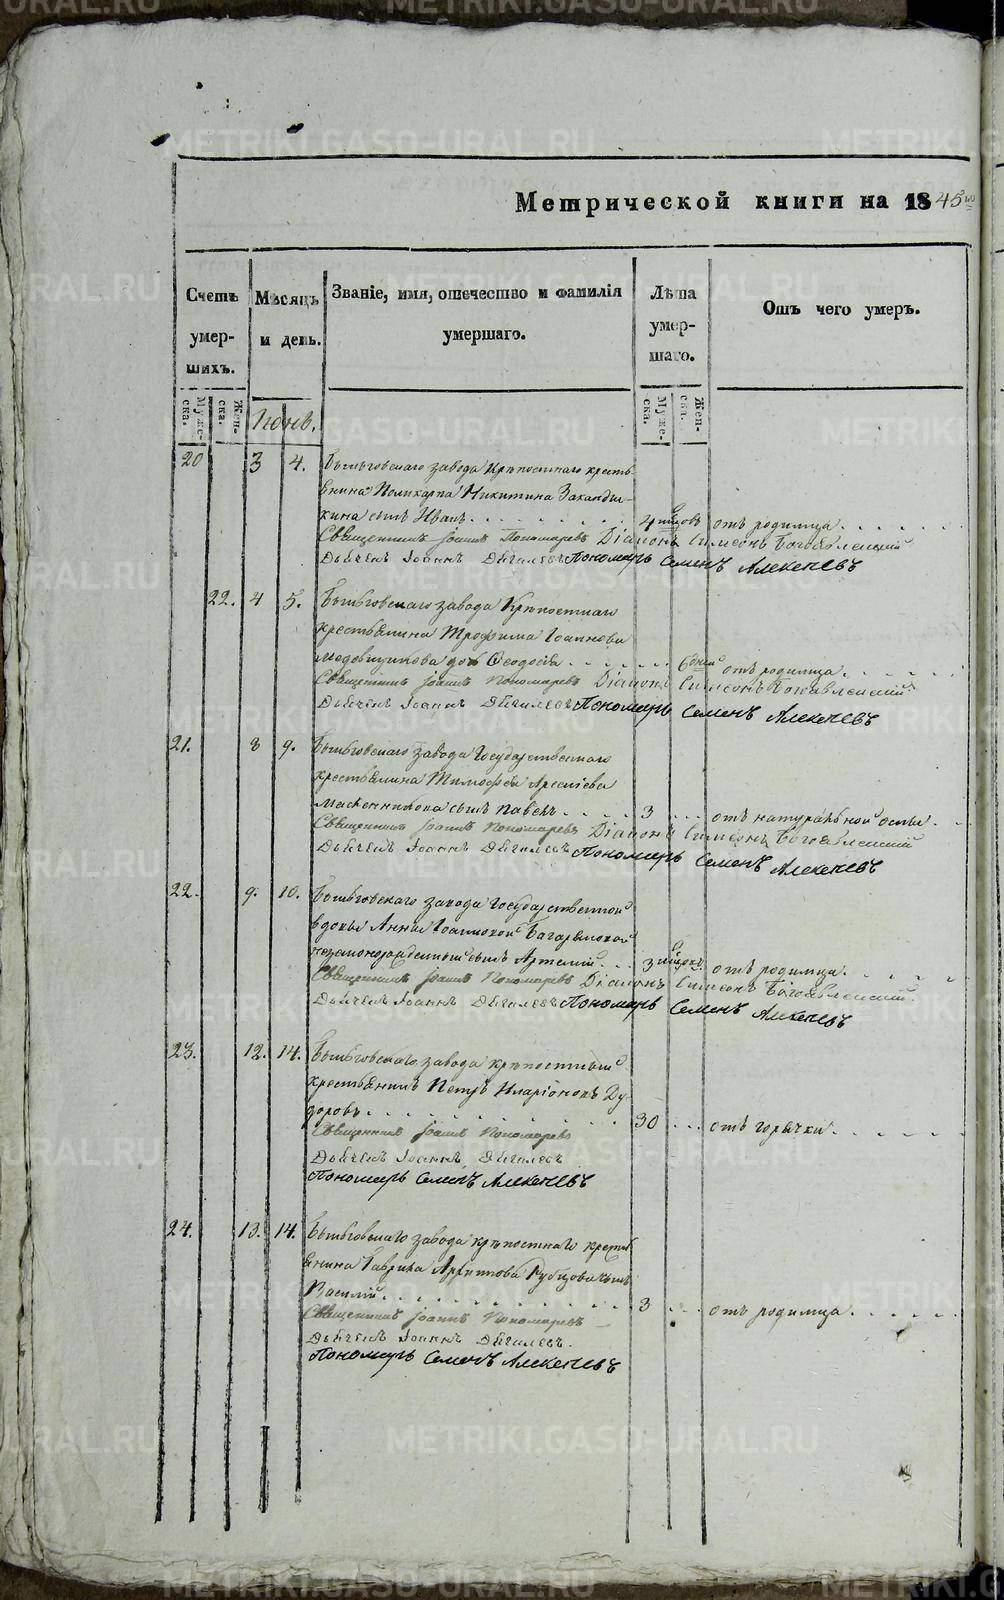 Метрической книги на 1845 го
Счетъ умершихъ.
Мѣсяцъ и день.
Званіе, имя, отечество и фамилія умершаго.
Лѣта умершаго.
Отъ чего умеръ.
Мужеска.
Женска.
Іюнь.
Мужеска.
Женска.
20 3 4. завода крѣпостнаго кресть
янина Поликарпа Никитина
кина сынъ Иванъ 4 отъ родимца
Священникъ Іоаннъ Пономаревъ Діаконъ Симеонъ Богоявленскій
Дьячекъ Іоаннъ Пономарь Семенъ
22. 4 5. завода Крѣпостнаго
крестьянина Трофима Іоаннова
Медовщикова дочь Ѳеодосія 6 дней отъ родимца
Священникъ Іоаннъ Пономаревъ Діаконъ Симеонъ Богоявленскій
Дьячекъ Іоаннъ Пономарь Семенъ
21. 8 9. завода Государственнаго
крестьянина Тимофея Арсеніева
Масленникова сынъ Павелъ 3 отъ натуральной оспы
Священникъ Іоаннъ Пономаревъ Діаконъ Симеонъ Богоявленскій
Дьячекъ Іоаннъ Пономарь Семенъ
22. 9. 10. завода Государственной
вдовы Анны Іоанновой
незаконорожденный сынъ Артемій 3 отъ родимца.
Священникъ Іоаннъ Пономаревъ Діаконъ Симеонъ Богоявленскій
Дьячекъ Іоаннъ Пономарь Семенъ
23. 12. 14. завода крѣпостный
крестьянинъ Петръ Иларіоновъ Ду-
доровъ 30 отъ горячки
Священникъ Іоаннъ Пономаревъ
Дьячекъ Іоаннъ
Пономарь Семенъ
24. 13. 14. завода крѣпостнаго кресть
янина Гаврила Архиппова сынъ
Василій 3 отъ родимца
Священникъ Іоаннъ Пономаревъ
Дьячекъ Іоаннъ
Пономарь Семенъ
METRIKI.GASO-URAL.RU